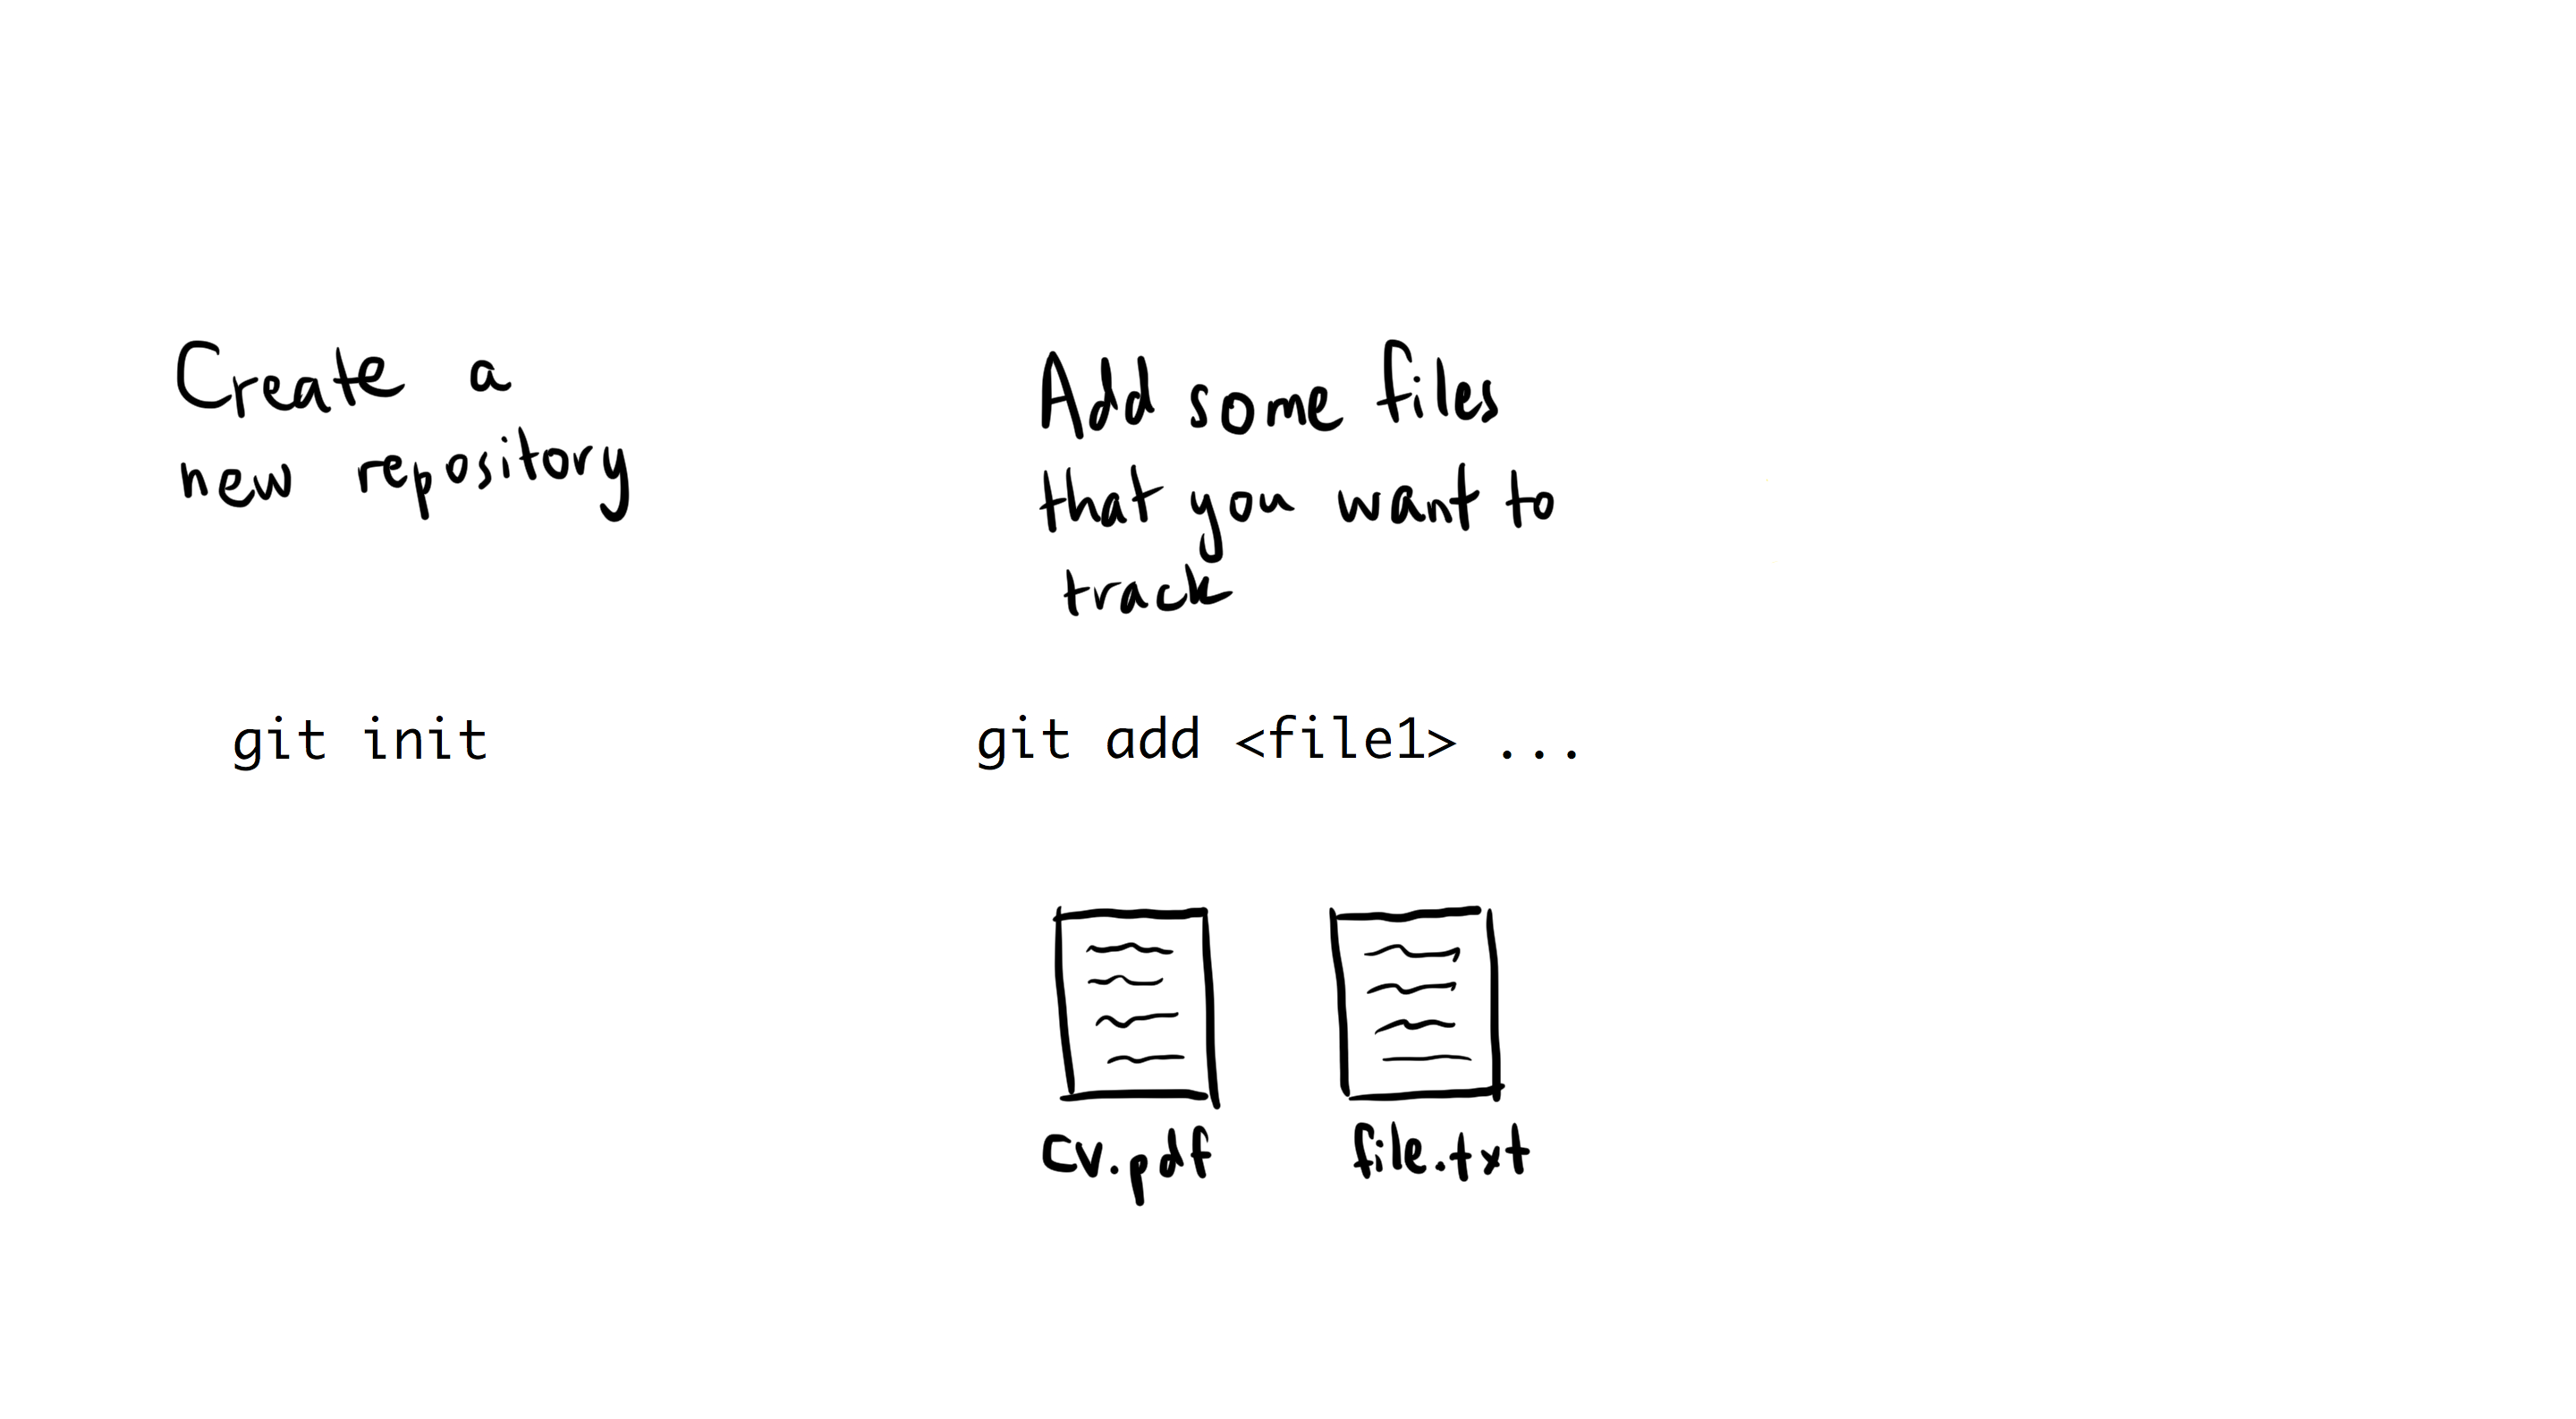 Create a
new repository
git init
Add some files
that you want to
track
git add <file1> ...
cv.pdf
file.txt